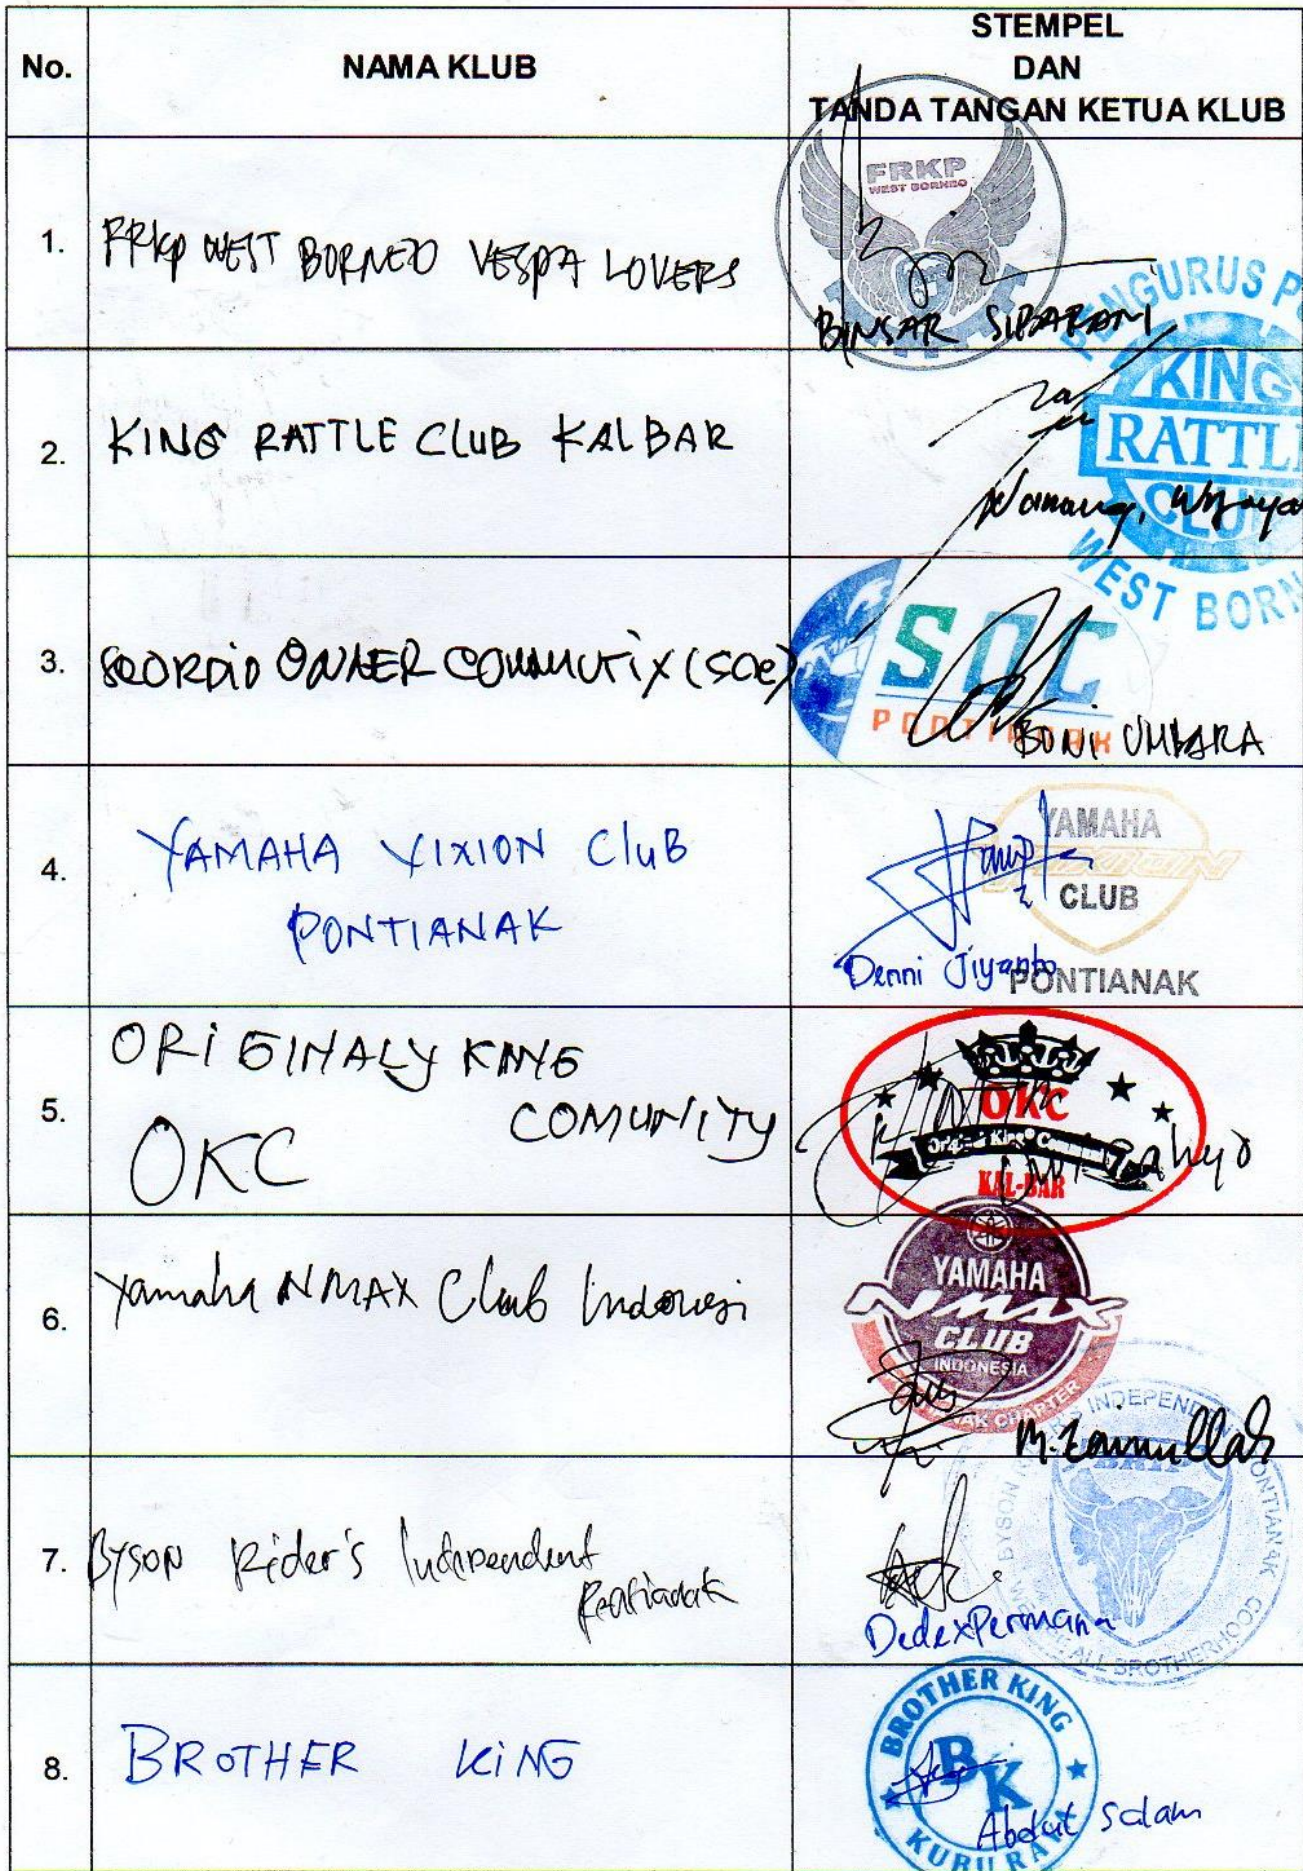 No.
NAMA KLUB
STEMPEL
DAN
TANDA TANGAN KETUA KLUB
1.
FRKP WEST BORNEO VESPA LOVERS
FRKP
WEST BORNEO
BINSAR SIBARANI
2.
KING RATTLE CLUB KALBAR
PENGURUS P
KING
RATTL
CLU
WEST BORN
Nanang, Wijaya
3.
SCORPIO OWNER COMMUTIX (SOC)
SOC
PONTIANAK
BONI UMBARA
4.
YAMAHA VIXION CluB
PONTIANAK
YAMAHA
VIXION
CLUB
PONTIANAK
Denni Jiyanto
5.
ORiGINALY KING
COMUNiTY
OKC
OKC
KAL-BAR
Dwi Cahyo
6.
Yamaha NMAX Club Indonesi
YAMAHA
NMAX
CLUB
INDONESIA
CHAPTER
M. Zainullah
7.
BYSON Rider's Independent
Pontianak
BYSON INDEPENDEN PONTIANAK
ALL BROTHERHOOD
Dedex Permana
8.
BROTHER KiNG
BROTHER KING
BK
KUBU RAYA
Abdul Salam